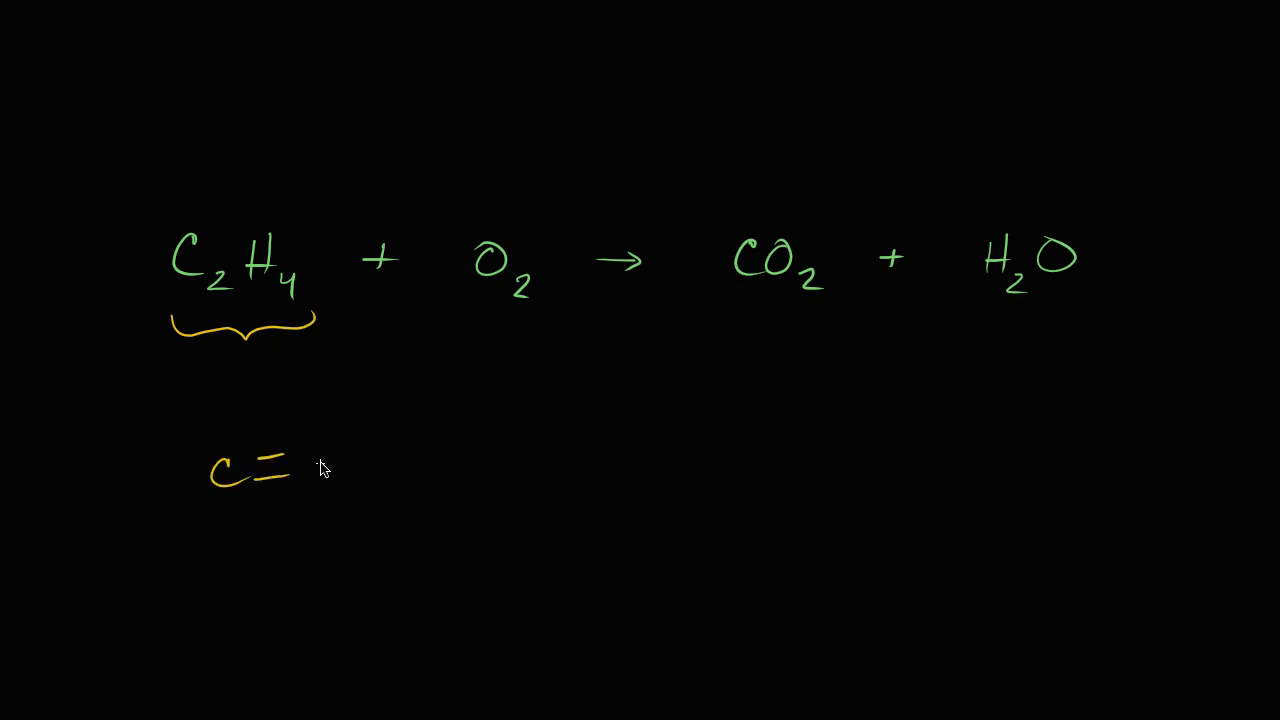 C₂H₄ + O₂ → CO₂ + H₂O
C=